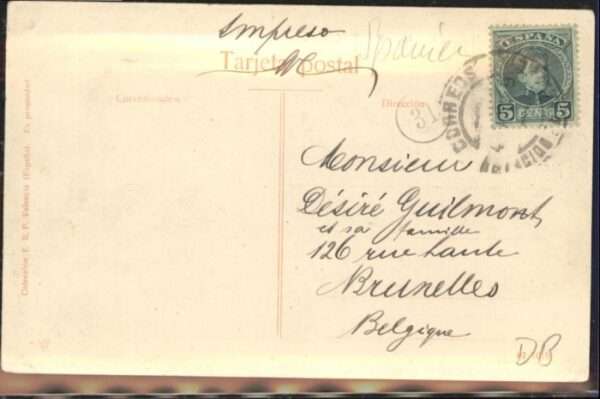 Impreso
Spanien
Tarjeta postal
Correspondencia
Dirección
ESPAÑA
5 CENT. 5
CORREOS
31
Monsieur
Désiré Guilmont,
et sa famille
126 rue haute
Bruxelles
Belgique
DB
Colección E. B. P. Valencia (España). Es propiedad.